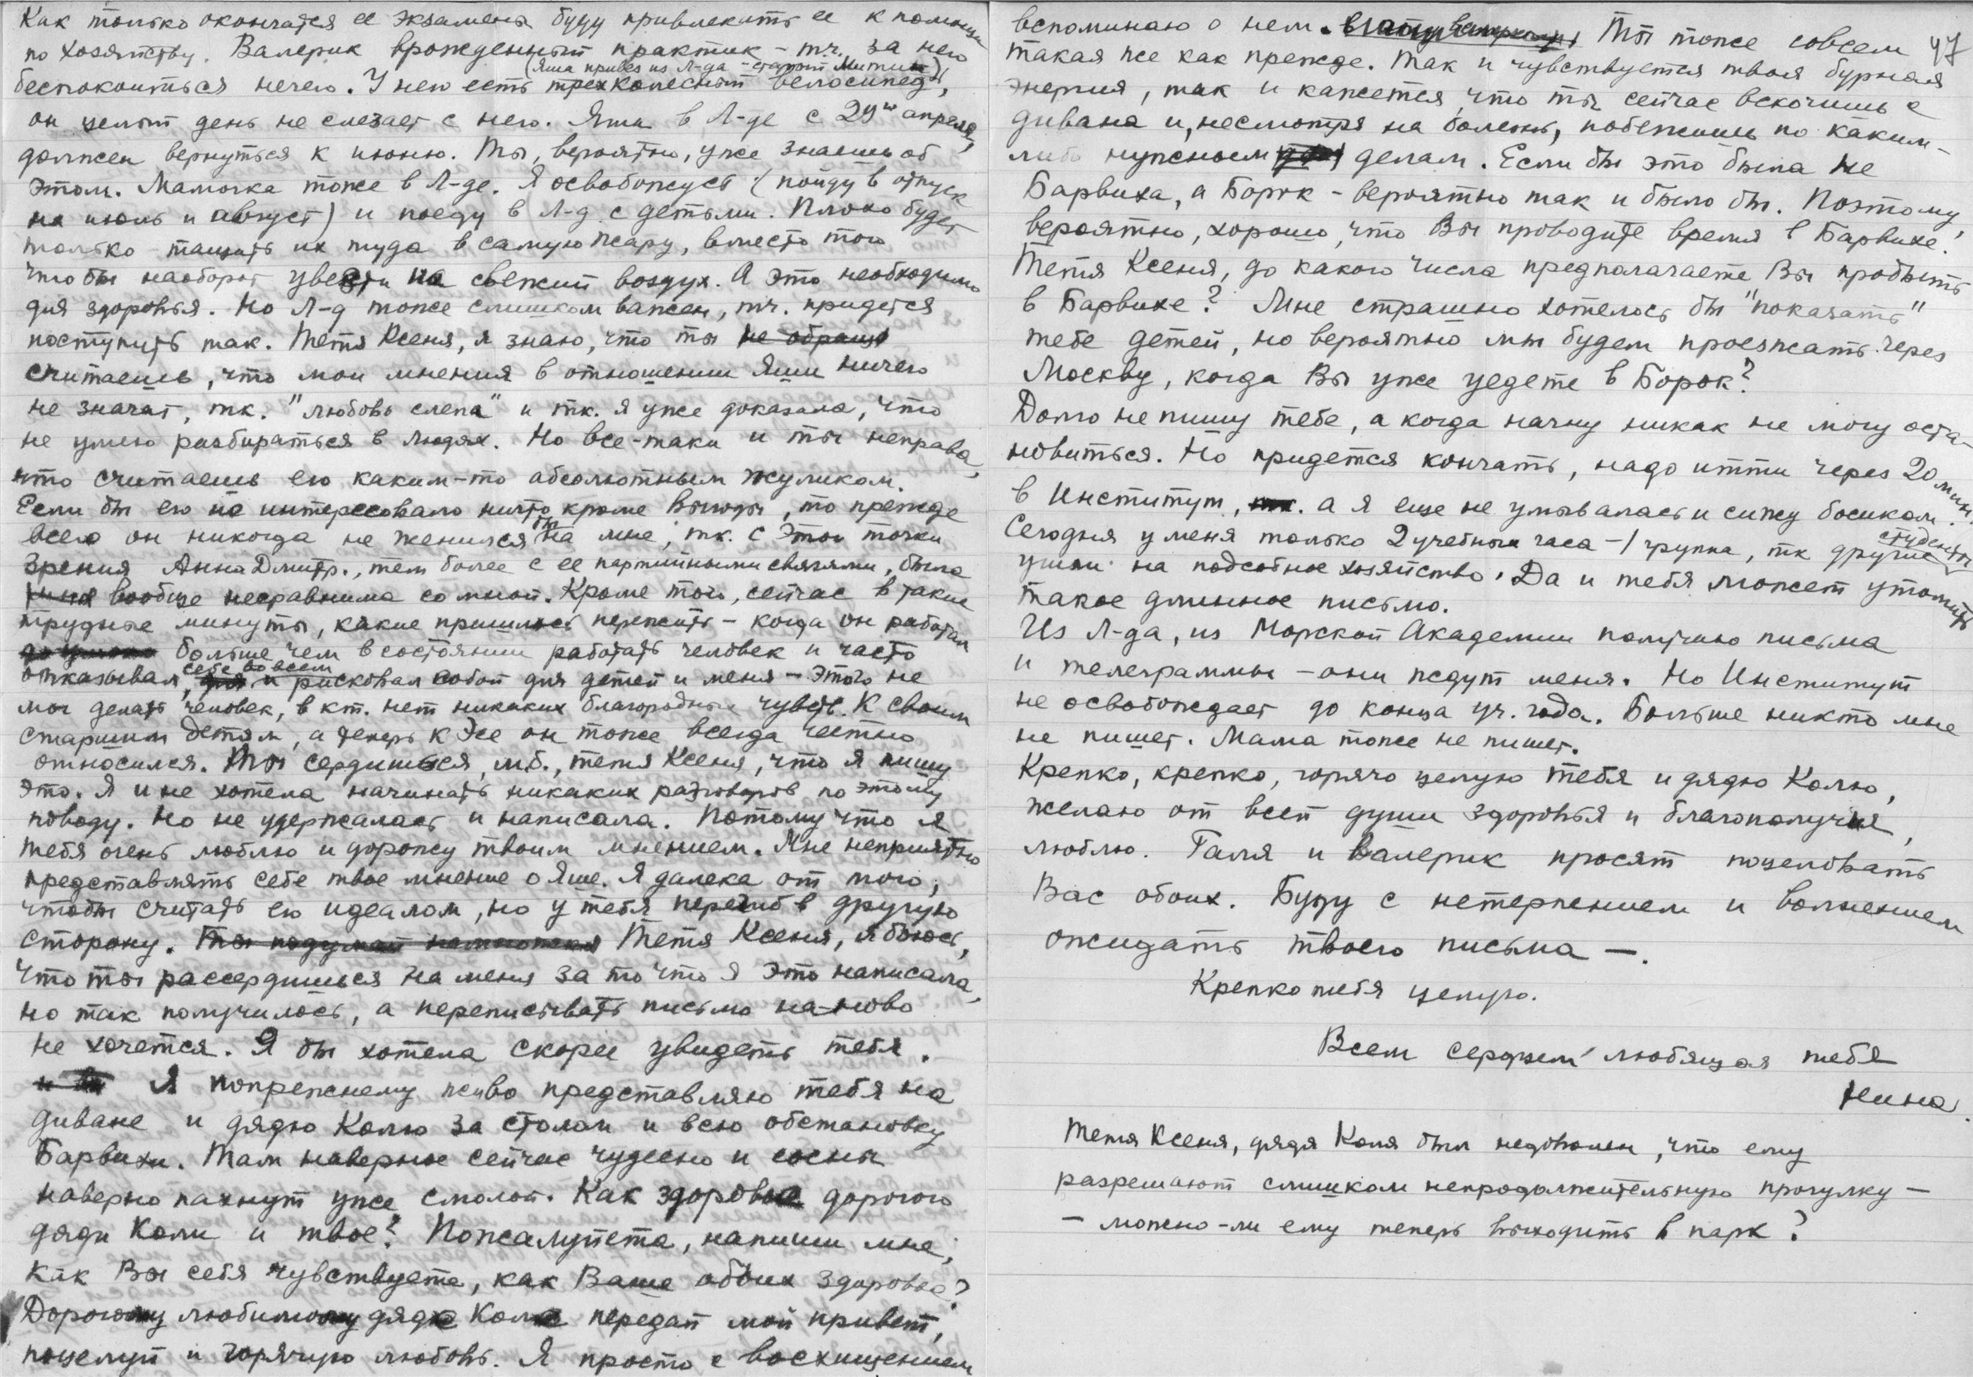 Как только окончатся ее экзамены буду привлекать ее к помощи
по хозяйству. Валерик врожденный практик - тч. за него
(Яша привез из Л-да - старый Митин)
беспокоиться нечего. У него есть трехколесный велосипед,
он целый день не слезает с него. Яша в Л-де с 29го апреля,
должен вернуться к июню. Ты, вероятно, уже знаешь об
этом. Мамочка тоже в Л-де. Я освобожусь (пойду в отпуск
на июль и август) и поеду в Л-д с детьми. Плохо будет
только - тащить их туда в самую жару, вместо того
чтобы наоборот увезти на свежий воздух. А это необходимо
для здоровья. Но Л-д тоже слишком важен, тч. придется
поступить так. Тетя Ксеня, я знаю, что ты не обращ
считаешь, что мои мнения в отношении Яши ничего
не значат, тк. "любовь слепа" и тк. я уже доказала, что
не умею разбираться в людях. Но все-таки и ты неправа,
что считаешь его каким-то абсолютным жуликом.
Если бы его не интересовало ничто, кроме выгоды, то прежде
всего он никогда не женился бы на мне, тк. с этой точки
зрения Анна Дмитр., тем более с ее партийными связями, была
вообще несравнима со мной. Кроме того, сейчас в такие
трудные минуты, какие пришлось пережить - когда он работал
больше чем в состоянии работать человек и часто
отказывал себе во всем и рисковал собой для детей и меня - этого не
мог делать человек, в кт. нет никаких благородных чувств. К своим
старшим детям, а теперь к Эе он тоже всегда честно
относился. Ты сердишься, м.б., тетя Ксеня, что я пишу
это. Я и не хотела начинать никаких разговоров по этому
поводу. Но не удержалась и написала. Потому что я
тебя очень люблю и дорожу твоим мнением. Мне неприятно
представлять себе твое мнение о Яше. Я далека от того,
чтобы считать его идеалом, но у тебя перегиб в другую
сторону. Ты подумай Тетя Ксеня, я боюсь,
что ты рассердишься на меня за то что я это написала,
но так получилось, а переписывать письмо на-ново
не хочется. Я бы хотела скорее увидеть тебя.
Я попрежнему живо представляю тебя на
диване и дядю Колю за столом и всю обстановку
Барвихи. Там наверное сейчас чудесно и сосны
наверно пахнут уже смолой. Как здоровье дорогого
дяди Коли и твое? Пожалуйста, напиши мне,
как Вы себя чувствуете, как Ваше обоих здоровье?
Дорогому любимому дяде Коле передай мой привет,
поцелуй и горячую любовь. Я просто с восхищением
47
вспоминаю о нем. Ты тоже совсем
такая же как прежде. Так и чувствуется твоя бурная
энергия, так и кажется, что ты сейчас вскочишь с
дивана и, несмотря на болезнь, побежишь по каким-
либо нужным делам. Если бы это была не
Барвиха, а Борок - вероятно так и было бы. Поэтому,
вероятно, хорошо, что Вы проводите время в Барвихе.
Тетя Ксеня, до какого числа предполагаете Вы пробыть
в Барвихе? Мне страшно хотелось бы "показать"
тебе детей, но вероятно мы будем проезжать через
Москву, когда Вы уже уедете в Борок?
Долго не пишу тебе, а когда начну никак не могу оста-
новиться. Но придется кончать, надо итти через 20 мин.
в Институт, тк. а я еще не умывалась и сижу босиком.
Сегодня у меня только 2 учебных часа - 1 группа, тк другие студенты
ушли на подсобное хозяйство. Да и тебя может утомить
такое длинное письмо.
Из Л-да, из Морской Академии получаю письма
и телеграммы - они ждут меня. Но Институт
не освобождает до конца уч. года. Больше никто мне
не пишет. Мама тоже не пишет.
Крепко, крепко, горячо целую тебя и дядю Колю,
желаю от всей души здоровья и благополучия,
люблю. Галя и Валерик просят поцеловать
Вас обоих. Буду с нетерпением и волнением
ожидать твоего письма —.
Крепко тебя целую.
Всем сердцем любящая тебя
Нина.
Тетя Ксеня, дядя Коля был недоволен, что ему
разрешают слишком непродолжительную прогулку —
— можно-ли ему теперь выходить в парк?